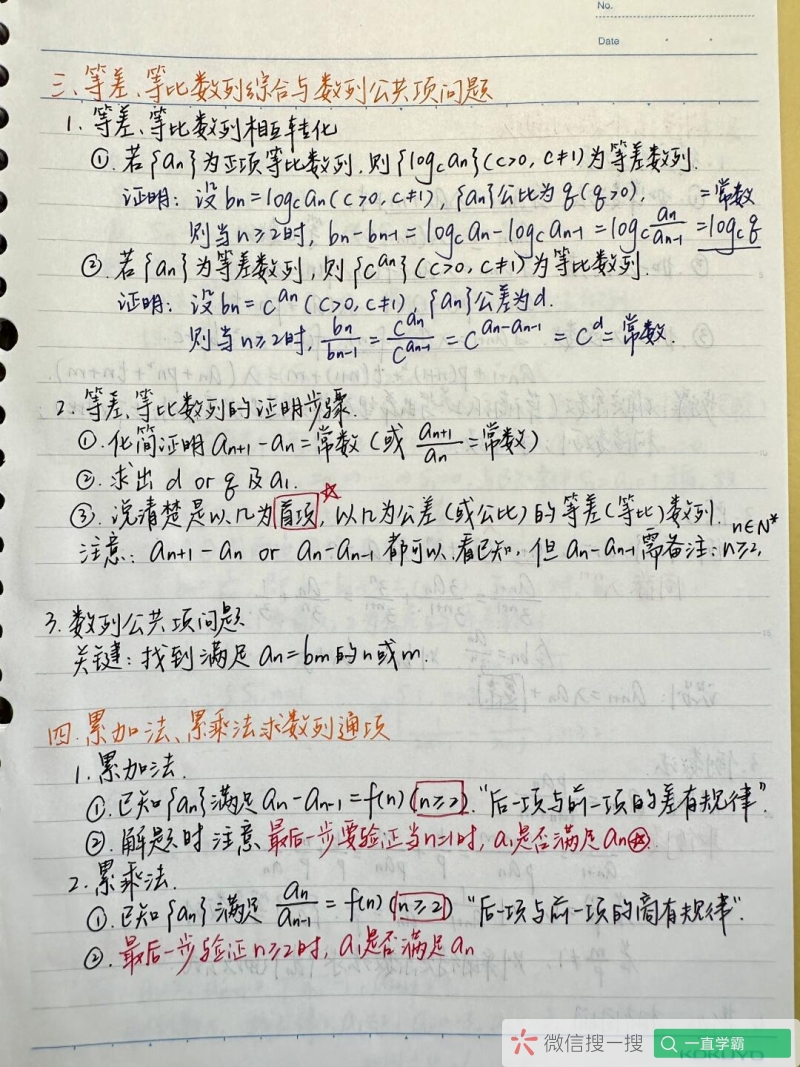 No.
Date
三、等差、等比数列综合与数列公共项问题
1. 等差、等比数列相互转化
①. 若{an}为正项等比数列,则{logc an}(c>0, c≠1)为等差数列.
证明:设bn=logc an(c>0, c≠1), {an}公比为q(q>0), =常数
则当n≥2时, bn-bn-1=logc an-logc an-1=logc an/an-1=logc q
②. 若{an}为等差数列,则{c^an}(c>0, c≠1)为等比数列.
证明:设bn=c^an(c>0, c≠1), {an}公差为d.
则当n≥2时, bn/bn-1=c^an/c^an-1=c^an-an-1=c^d=常数.
2. 等差、等比数列的证明步骤.
①. 化简证明an+1-an=常数(或 an+1/an=常数)
②. 求出 d or q 及a1.
③. 说清楚是以几为首项, 以几为公差(或公比)的等差(等比)数列.
注意: an+1-an or an-an-1都可以,看已知,但an-an-1需备注:n≥2, n∈N*
3. 数列公共项问题
关键:找到满足an=bm的n或m.
四.累加法、累乘法求数列通项
1. 累加法.
①. 已知{an}满足an-an-1=f(n)(n≥2). “后一项与前一项的差有规律”.
②. 解题时注意最后一步要验证当n=1时, a1是否满足an☆.
2. 累乘法.
①. 已知{an}满足 an/an-1=f(n)(n≥2) “后一项与前一项的商有规律”.
②. 最后一步验证n≥2时, a1是否满足an
微信搜一搜 一直学霸
KOKUYO